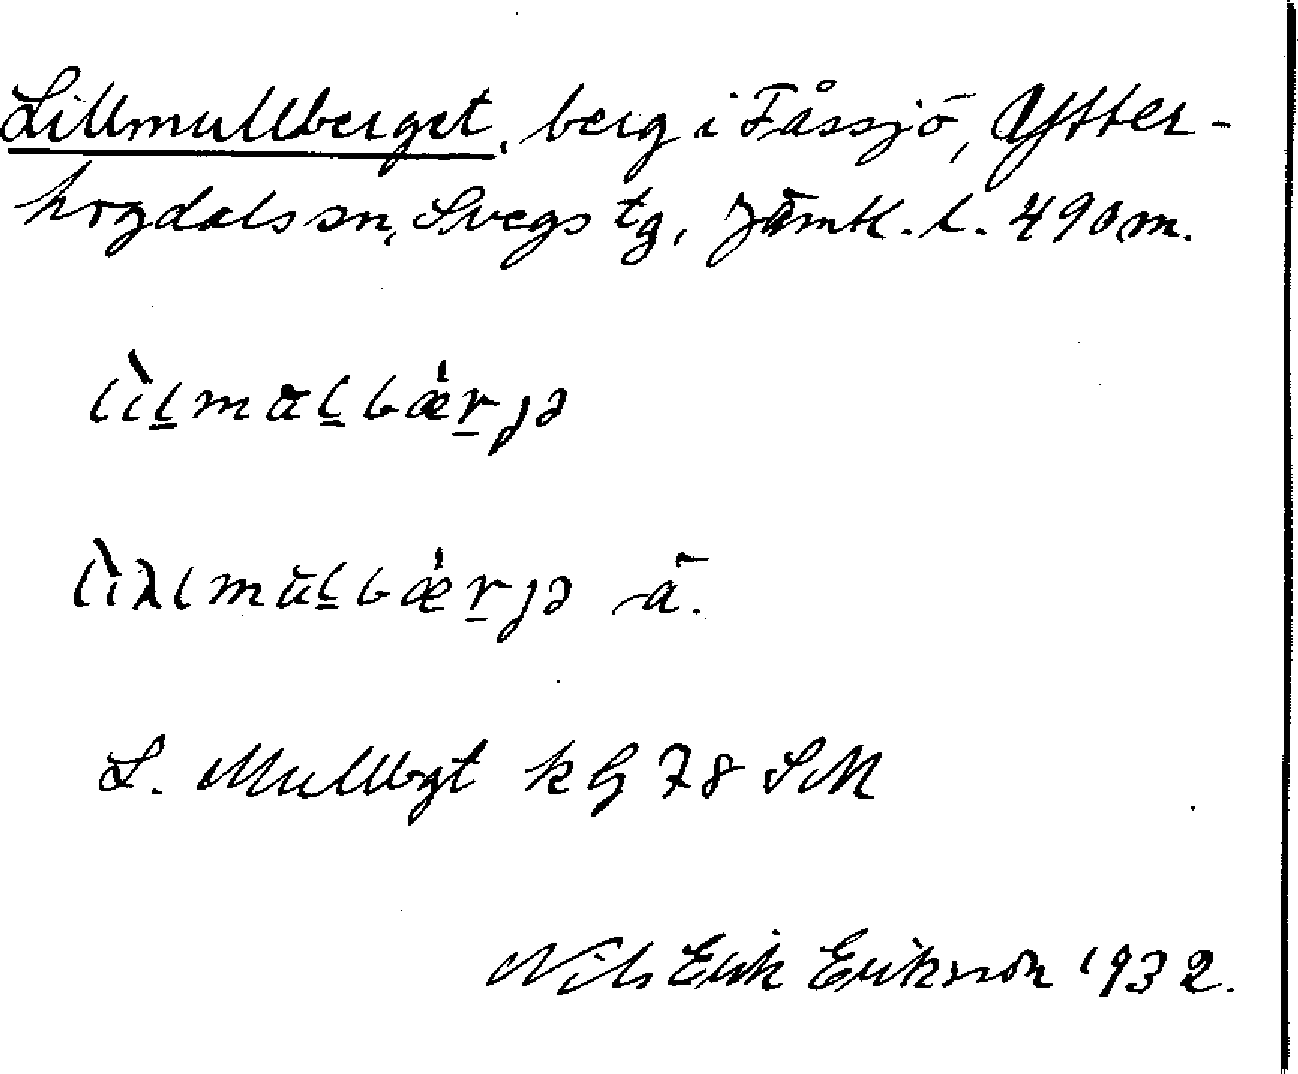 Lillmullberget, berg i Fåssjö, Ytter-
hogdals sn, Svegs tg, Jämtl. l. 490 m.
L. Mullbgt kG 78 SM
Nils Erik Eriksson 1932.